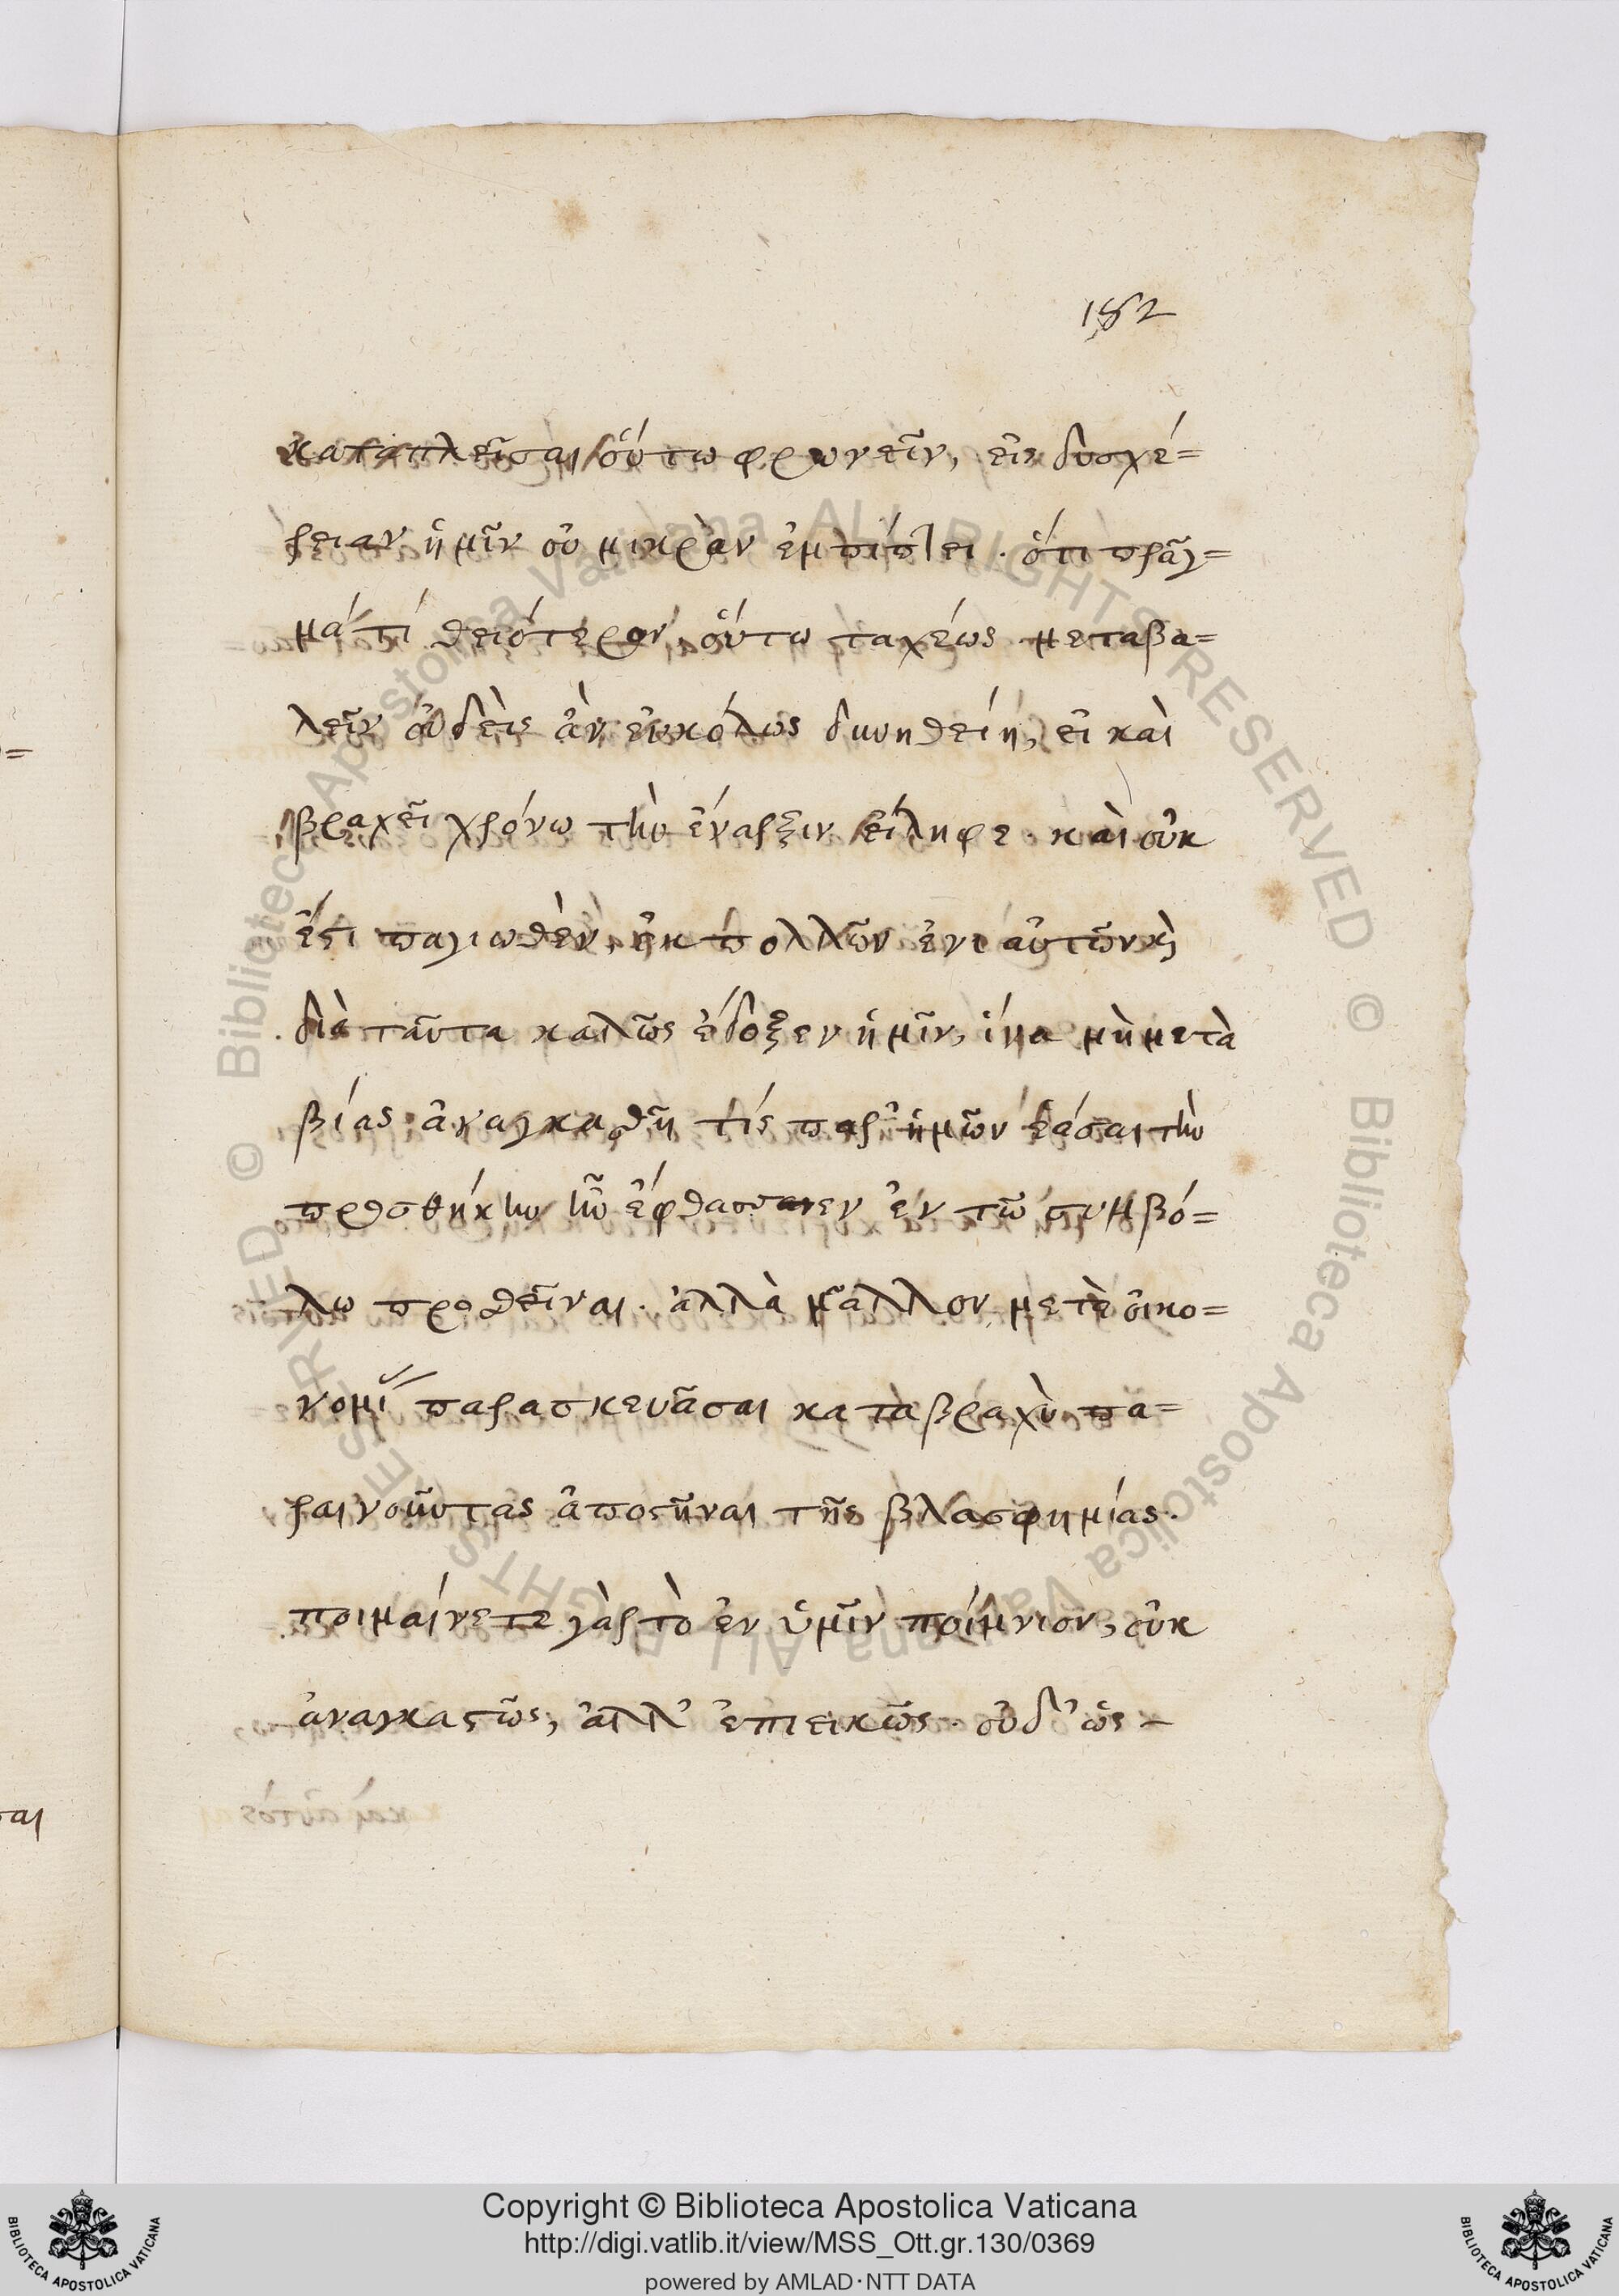 182
καταπλεῖσαι οὕτω φρωνεῖν, εἰς δυσχέ=
ρειαν ἡμῖν οὐ μικρὰν ἐμπίπτει. ὅτι πρᾶγ=
μά τί θειότερον, οὕτω ταχέως μεταβα=
λεῖν οὐδεὶς ἂν εὐκόλως δυνηθείη, εἰ καὶ
βραχεῖ χρόνω τὴν ἔναρξιν εἴληφε. καὶ οὐκ
ἔστι παγιωθὲν, ἐκ πολλῶν ἐνιαυτῶν κ
διὰ ταῦτα καλῶς ἔδοξεν ἡμῖν, ἵνα μὴ μετὰ
βίας ἀναγκασθῆ τίς παρ' ἡμῶν ἐάσαι τὴν
προσθήκην ἣν ἔφθασαν ἐν τῶ συμβό=
λω προθεῖναι. ἀλλὰ μᾶλλον μετὰ οἰκο=
νομί παρασκευᾶσαι κατὰ βραχὺ πα=
ραινοῦντας ἀποστῆναι τῆς βλασφημίας.
ποιμαίνετε γὰρ τὸ ἐν ὑμῖν ποίμνιον, οὐκ
ἀναγκαστῶς, ἀλλ' ἐπιεικῶς. οὐδ' ὡς -
σαι
Copyright © Biblioteca Apostolica Vaticana
http://digi.vatlib.it/view/MSS_Ott.gr.130/0369
powered by AMLAD·NTT DATA
BIBLIOTECA APOSTOLICA VATICANA
BIBLIOTECA APOSTOLICA VATICANA
© Biblioteca Apostolica Vaticana ALL RIGHTS RESERVED © Biblioteca Apostolica Vaticana ALL RIGHTS RESERVED